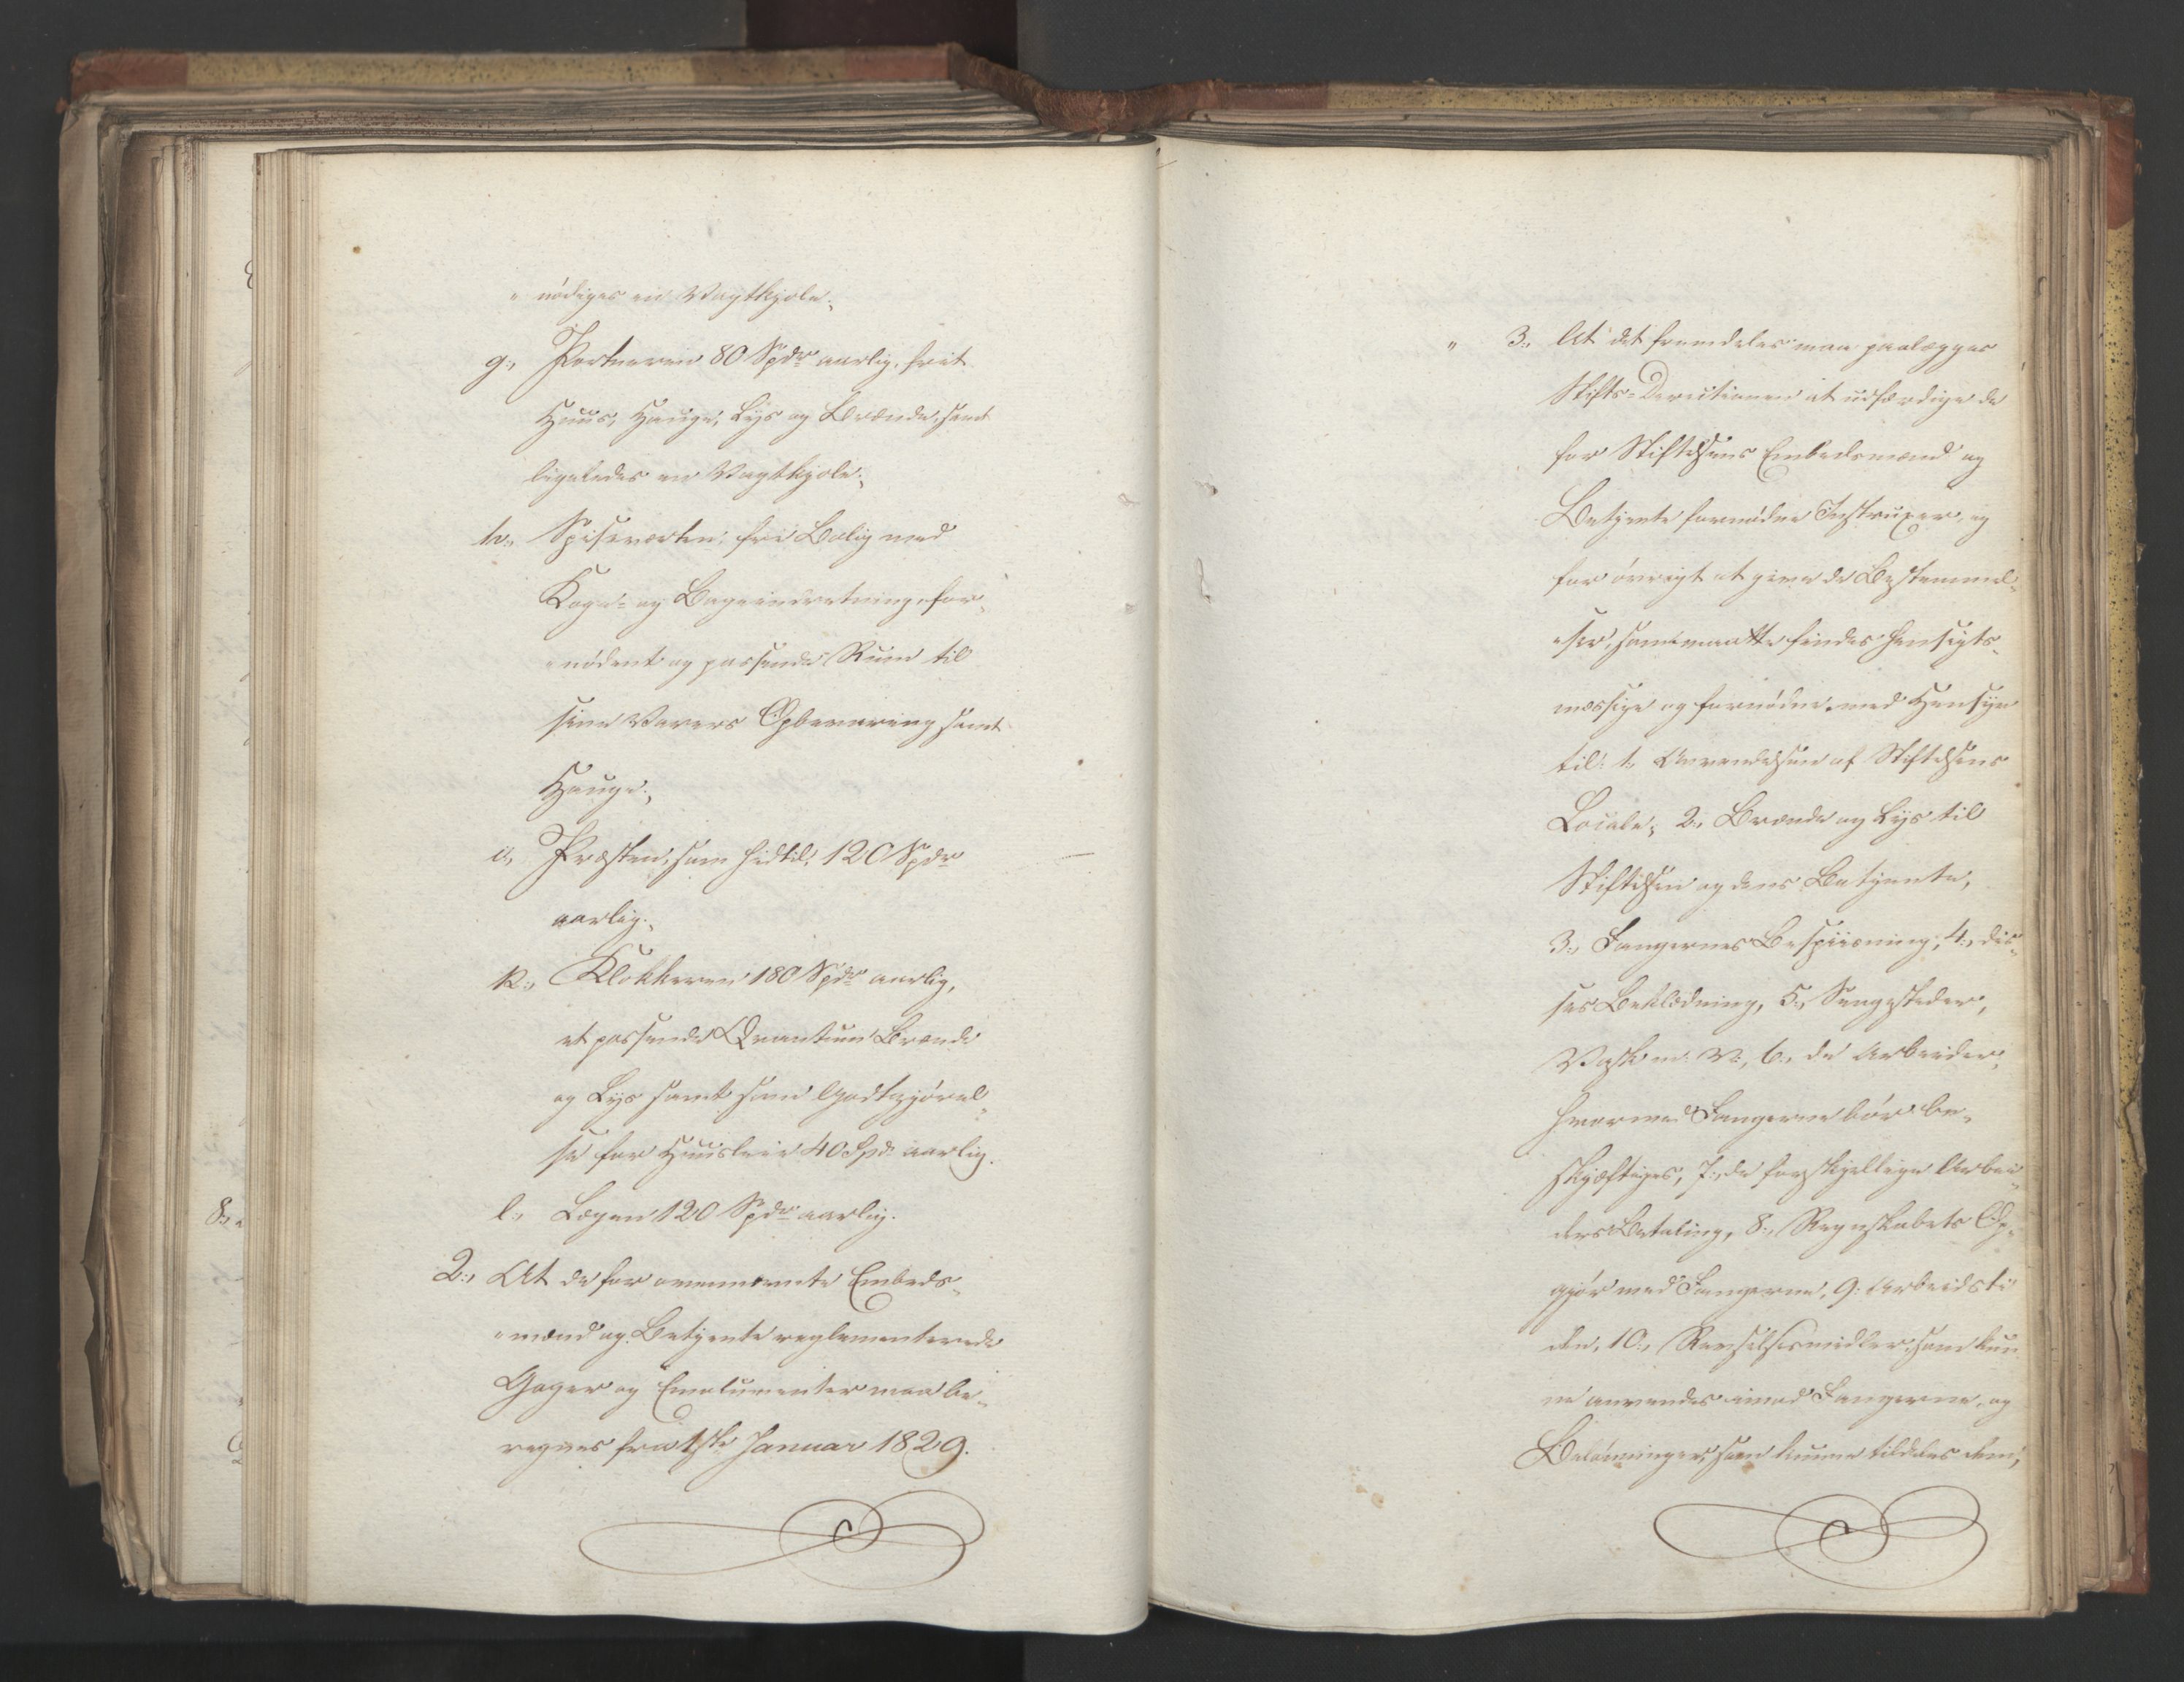 " nödiges en Vagtkjole.,
g., Portneren 80 Spdr aarlig, frit
Huus, Hauge, Lys og Brænde, samt
ligeledes en Vagtkjole.,
h., Spiseværten: fri Bolig med
Koge- og Bageindretning, for-
" nödent og passende Rum til
sine Varers Opbevaring samt
Hauge.,
i., Præsten, som hidtil, 120 Spdr
aarlig.,
k., Klokkeren 180 Spdr aarlig,
et passende Qvantum Brænde
og Lys samt som Godtgjörel-
se for Huusleie 40 Spd. aarlig.
l., Lægen 120 Spdr aarlig.
2., At de for ovennævnte Embeds-
" mænd og Betjente reglementerede
Gager og Emolumenter maa be-
regnes fra 1ste Januar 1829.
" 3., At det fremdeles maa paalægges
Stifts-Directionen at udfærdige de
for Stiftelsens Embedsmænd og
Betjente fornödne Instruxer, og
for övrigt at give de Bestemmel-
" ser, som maatte findes hensigts-
mæssige og fornödne, med Hensyn
til: 1., Anvendelsen af Stiftelsens
Locale, 2., Brænde og Lys til
Stiftelsen og dens Betjente,
3., Fangernes Bespiisning, 4., dis-
ses Beklædning, 5., Sengesteder,
Vask m. V., 6., de Arbeider,
hvormed Fangerne bör be-
skjæftiges, 7., de forskjellige Arbei-
ders Betaling, 8., Regnskabets Op-
gjör med Fangerne, 9., Arbeidsti-
den, 10., Revselsesmidler, som kun-
ne anvendes imod Fangerne, og
Belönninger, som kunne tildeles dem,